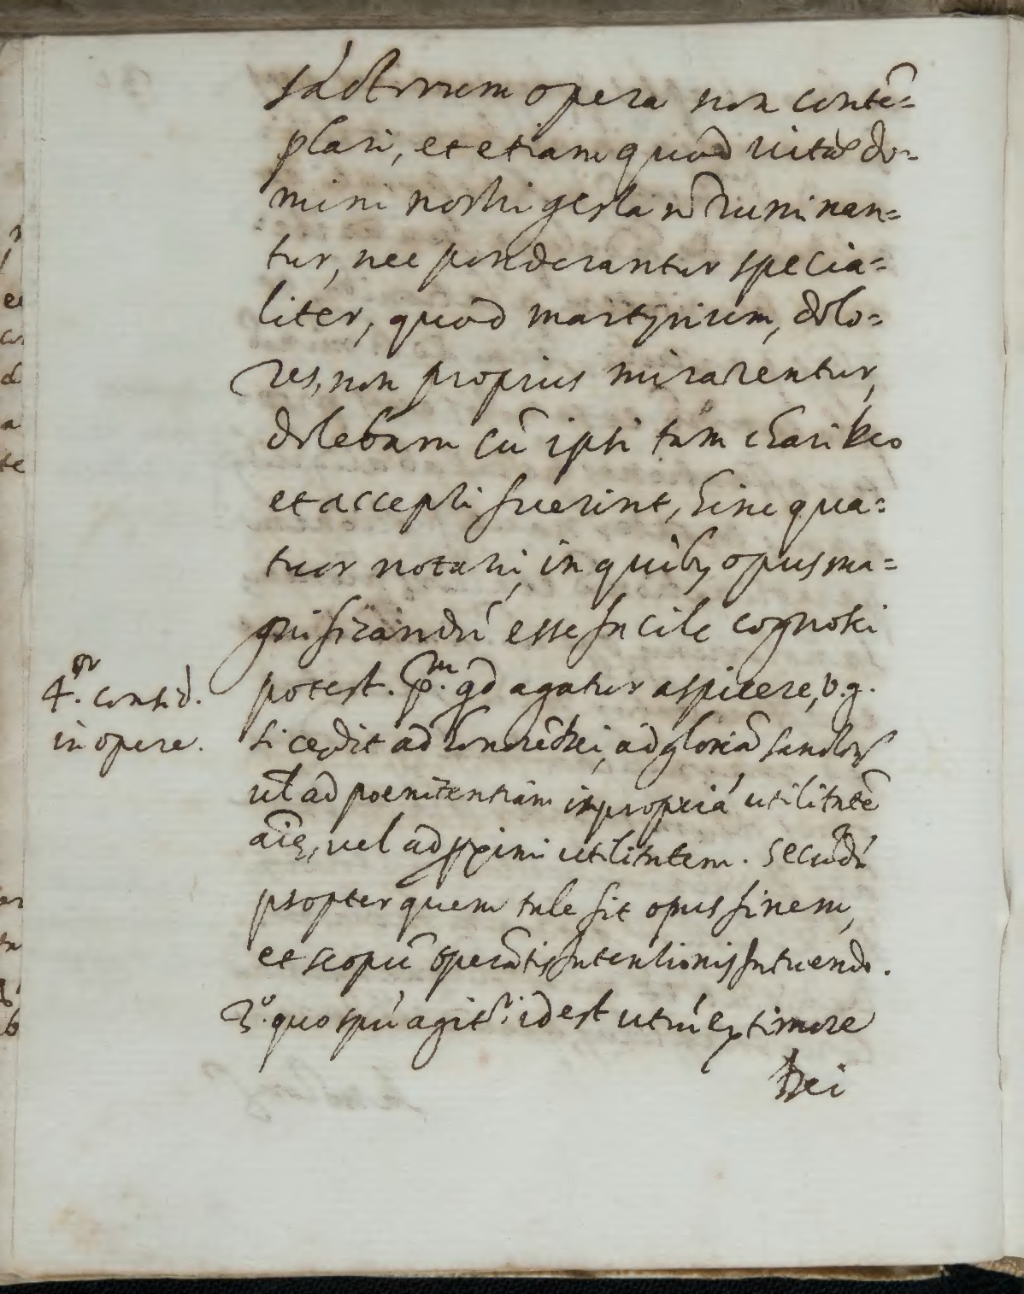 sáctorum opera non contē=
plari, et etiam quod vitae do=
mini nostri gesta nō rumi nan=
tur, nec ponderantur specia=
liter, quod martyrium, dolo=
res, non proprius mirarentur,
dolebam cū ipsi tam chari Deo
et accepti fuerint, hinc qua=
tuor notavi, in quibꝫ opus ma=
gnificandū esse facile cognosci
potest. pᵐ. qd agatur aspicere, v.g.
4.ᵒʳ consid.
in opere.
si cedit ad honorē Dei, ad gloriā sanctoꝝ
vel ad poenitentiam in propriā utilitatē
aīę, vel ad pximi utilitatem. secūdū
propter quem tale sit opus finem,
et scopū operātis intentionis intuendo.
3.º quo spū agitʳ. id est utrū ex timore
Dei